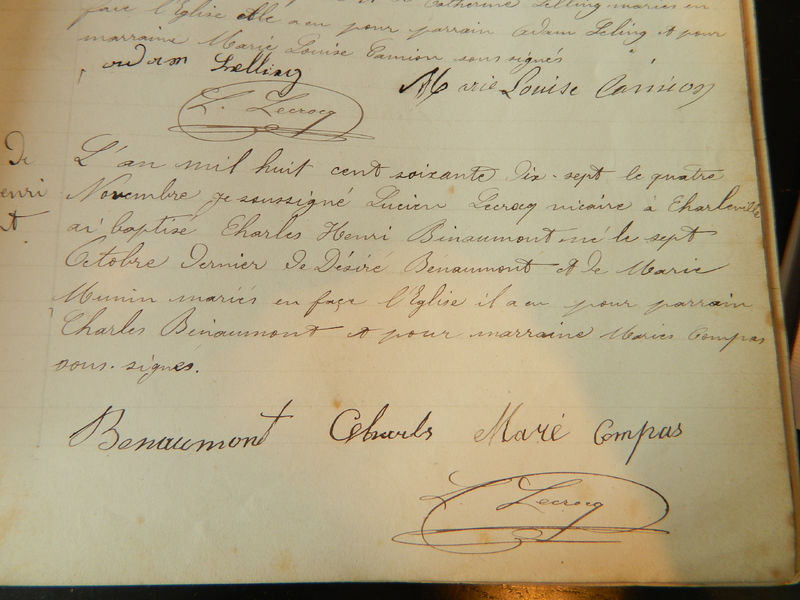 face l'Eglise elle a eu pour parrain Adam Leling et pour
marraine Marie Louise Camion sous signés
adam Lelling
Marie Louise Camion
L. Lecrocq
De
enri
t.
L'an mil huit cent soixante dix-sept le quatre
Novembre je soussigné Lucien Lecrocq vicaire à Charleville
ai baptisé Charles Henri Bénaumont né le sept
Octobre dernier de Désiré Bénaumont et de Marie
Munin mariés en façe l'Eglise il a eu pour parrain
Charles Bénaumont et pour marraine Maries Compas
sous-signés.
Benaumont Charls Maré Compas
L. Lecrocq